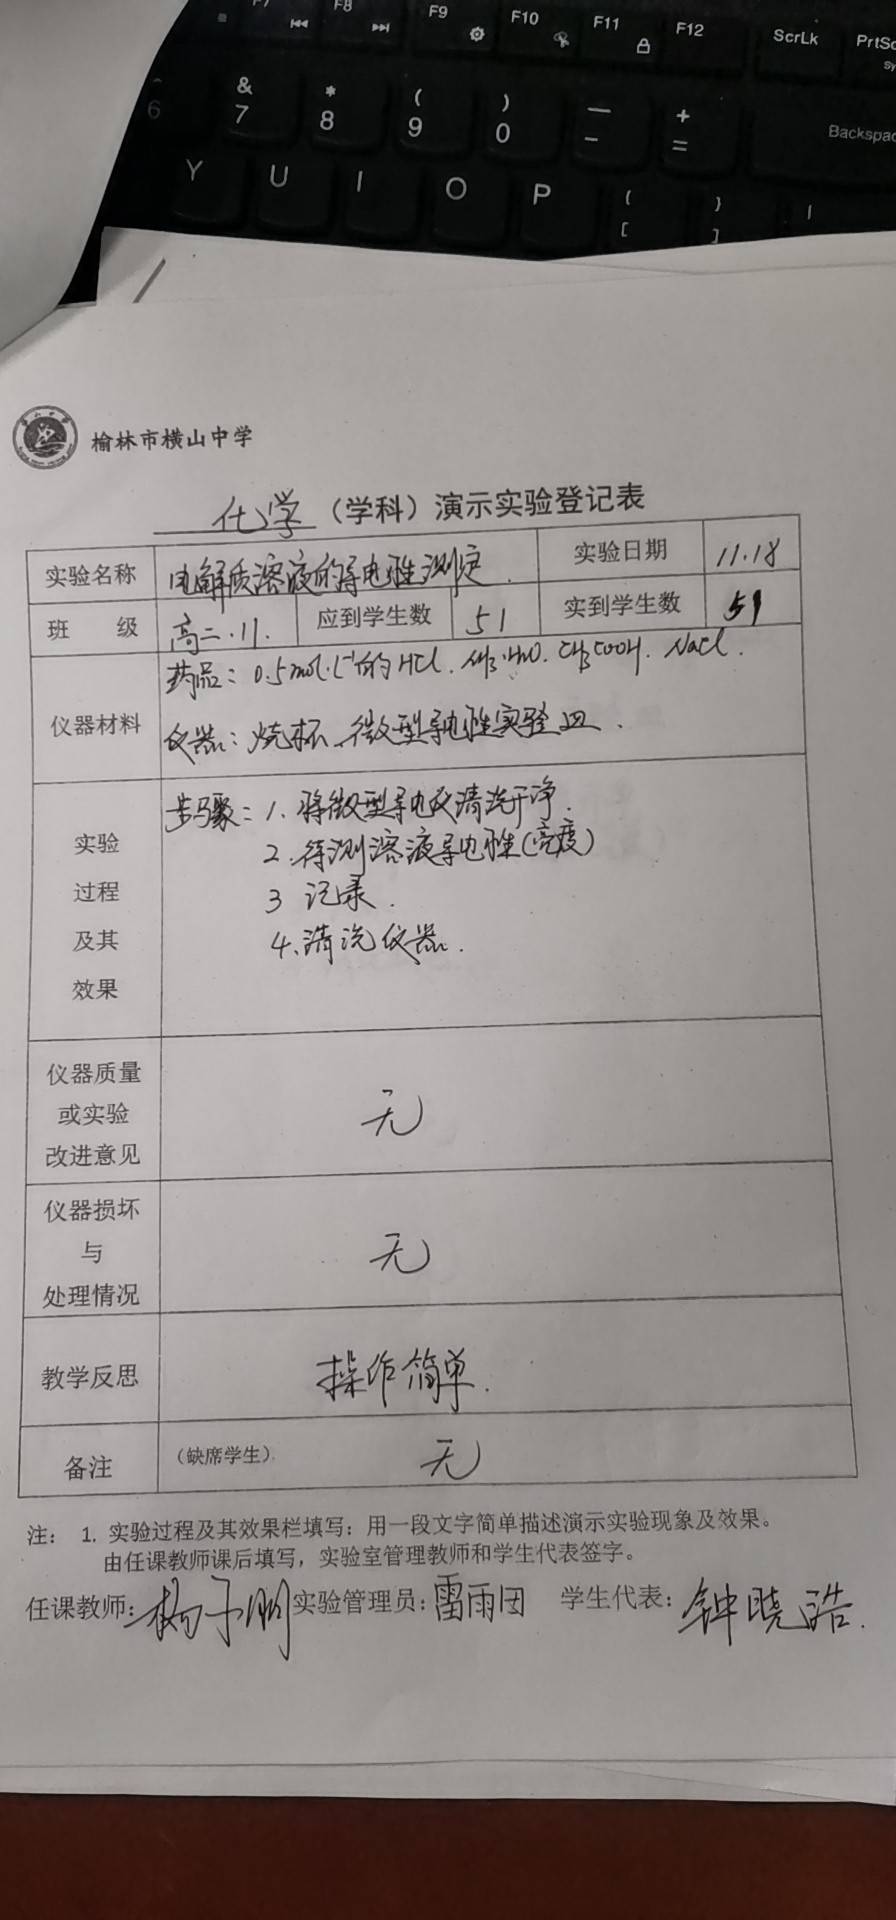 F7 F8 F9 F10 F11 F12 ScrLk PrtSc
Sy
& * ( ) — +
6 7 8 9 0 - = Backspac
Y U I O P { } |
[ ]
榆林市横山中学
化学（学科）演示实验登记表
实验名称 电解质溶液的导电性测定. 实验日期 11.18
班 级 高二.11. 应到学生数 51 实到学生数 51
药品：0.5mol·L⁻¹的HCl. NH₃·H₂O. CH₃COOH. NaCl.
仪器材料
仪器：烧杯、微型导电性实验皿.
步骤：1. 将微型导电皿清洗干净.
实验 2. 待测溶液导电性(亮度)
过程 3 记录.
及其 4. 清洗仪器.
效果
仪器质量
或实验 无
改进意见
仪器损坏
与 无
处理情况
教学反思 操作简单.
备注 （缺席学生） 无
注： 1. 实验过程及其效果栏填写：用一段文字简单描述演示实验现象及效果。
由任课教师课后填写，实验室管理教师和学生代表签字。
任课教师：杨子朋 实验管理员：雷雨田 学生代表：钟晓浩.